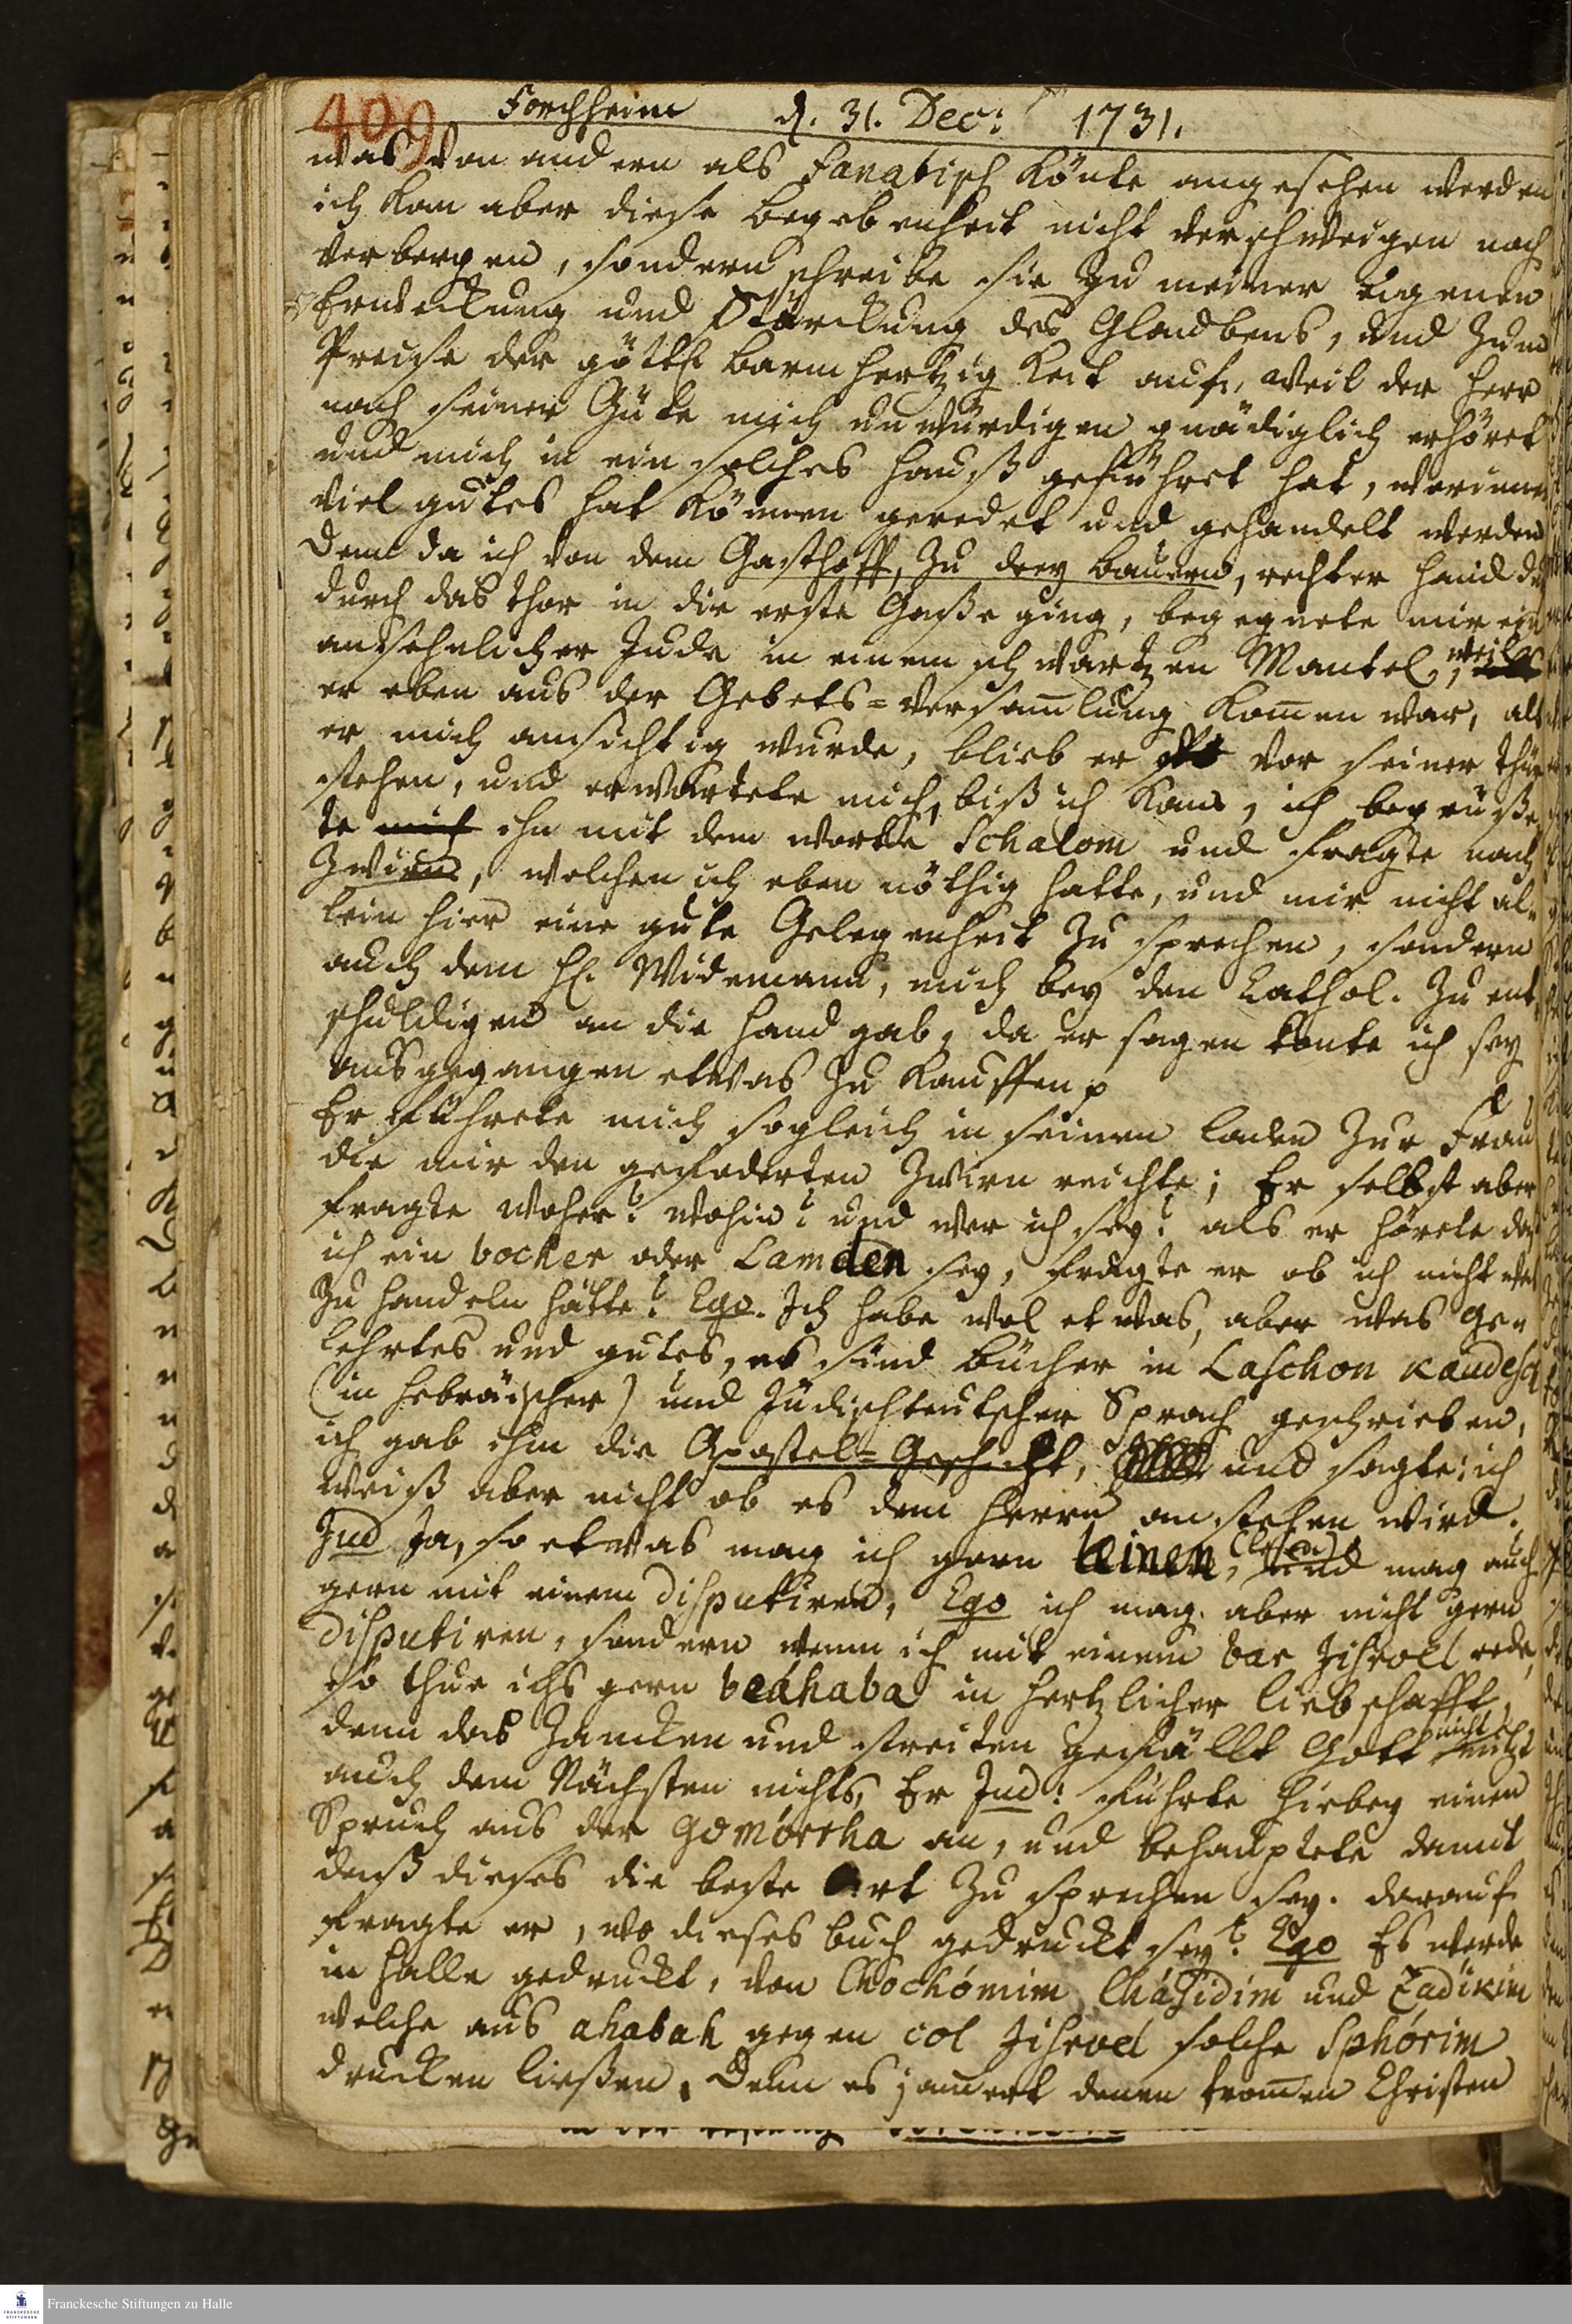 409 Forchheim d. 31. Dec: 1731.
was von andern als fanatisch könte angesehen werden
ich kan aber diese begebenheit nicht verschweigen noch
verbergen, sondern schreibe sie zu meiner eigenen
Erweckung und Stärckung des Glaubens, und zum
Preise der göttl barmhertzigkeit auf, weil der Herr
nach seiner Güte mich unwürdigen gnädiglich erhöret
und mich in ein solches Hauß geführet hat, worinnen
viel gutes hat können geredet und gehandelt werden
Denn da ich von dem Gasthoff, zu drey bauern, rechter Hand
durch das thor in die erste Gaße ging, begegnete mir ein
ansehnlicher Jude in einem schwartzen Mantel, weil
er eben aus der Gebets=versamlung komen war, als
er mich ansichtig wurde, blieb er vor seiner thür
stehen, und erwartete mich, biß ich kam, ich begrüße
te mich ihn mit dem worte Schalom und fragte nach
Zwirn, welchen ich eben nöthig hatte, und mir nicht al-
lein hier eine gute Gelegenheit zu sprechen, sondern
auch dem H. Widemann, mich bey den Cathol. zu ent,
schuldigen an die Hand gab, da er sagen konte ich sey
ausgegangen etwas zu kauffen p
Er führete mich sogleich in seinen laden zur Frau
die mir den gefoderten Zwirn reichte; Er selbst aber
fragte woher? wohin? und wer ich sey? als er hörete daß
ich ein bocher oder Lamden sey, fragte er ob ich nicht
zu handeln hätte? Ego. Ich habe wol etwas, aber was ge-
lehrtes und gutes, es sind bücher in Laschon kaudesch
(in hebräischer) und Jüdischteutscher Sprach geschrieben,
ich gab ihm die Apostel=Geschicht, und sagte: ich
weiß aber nicht ob es dem Herrn anstehen wird.
Jud Ja, so etwas mag ich gern leinen, (lesen) und mag auch
gern mit einem disputiren, Ego ich mag aber nicht gern
disputiren, sondern wenn ich mit einem bar Jisroel rede,
so thue ichs gern beahaba in hertzlicher liebschafft,
denn das Zancken und streiten gefällt Gott nicht nützt
auch dem Nächsten nichts, Er Jud: führte hiebey einen
Spruch aus der Gomórrha an, und behauptete damit
daß dieses die beste Art zu sprechen sey. darauf
fragte er, wo dieses buch gedruckt sey? Ego Es werde
in Halle gedruckt, von Chochómim, Chásidim und Zadikim
welche aus ahabah gegen col Jisroel solche Sphórim
drucken ließen. Denn es jamert denen fromen Christen
Franckesche Stiftungen zu Halle